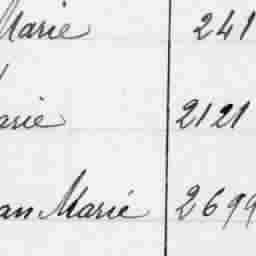 Marie 241
arie 2121
an Marie 2699